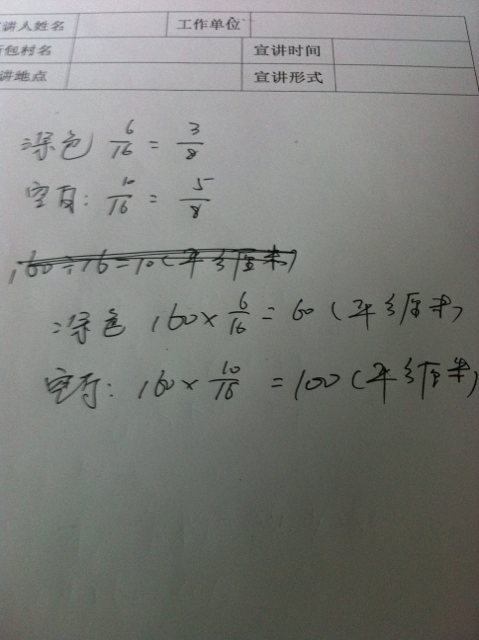 讲人姓名 工作单位
包村名 宣讲时间
讲地点 宣讲形式
涂色 6/16 = 3/8
空白: 10/16 = 5/8
160÷16=10(平方厘米)
涂色 160×6/16=60(平方厘米)
空白: 160×10/16 =100(平方厘米)